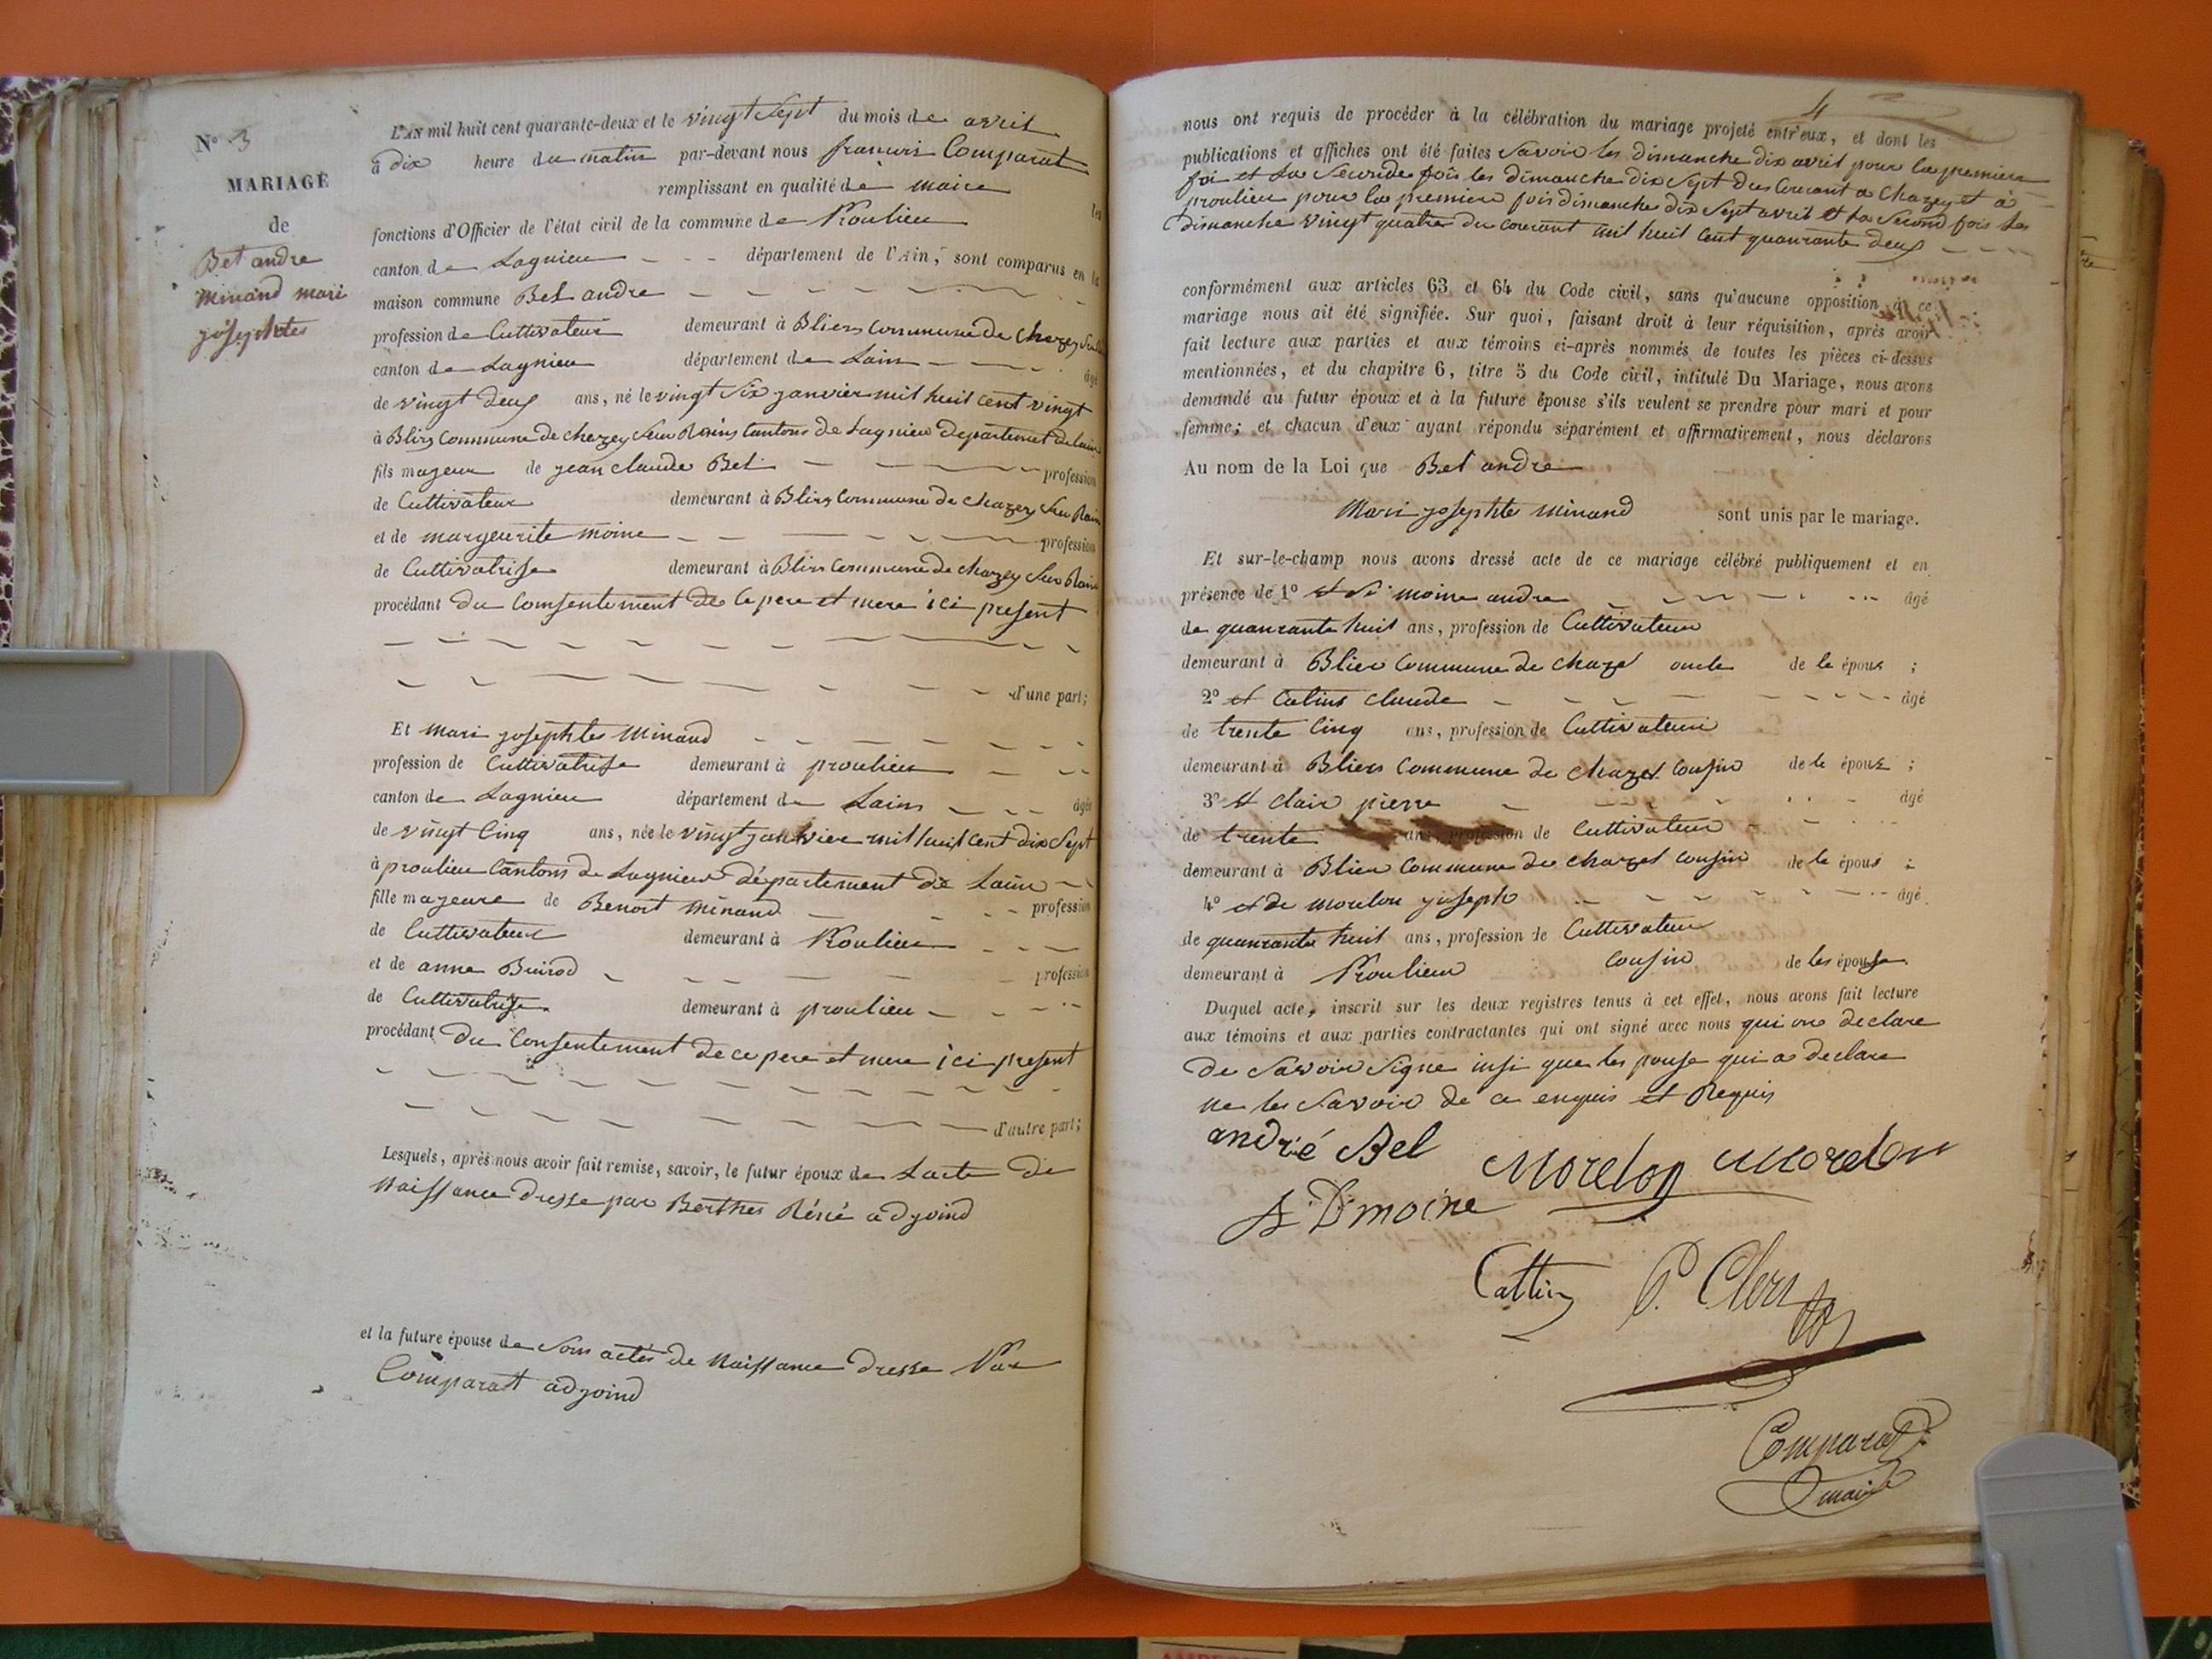 N° 3
MARIAGE
de
Bel andre
Minand mari
josephtes
L'AN mil huit cent quarante-deux et le vingt Sept du mois de avril
à dix heure du matin par-devant nous francois Comparat
remplissant en qualité de maire les
fonctions d'Officier de l'état civil de la commune de Proulieu
canton de Lagnieu département de l'Ain, sont comparus en la
maison commune Bel andre
profession de Cultivateur demeurant à Bliers Commune de Chazey Sur
canton de Lagnieu département de Lain âgé
de vingt deux ans, né le vingt Six janvier mil huit cent vingt
à Blis Commune de chazey Sur Rains Cantons de Lagnieu departemet de lain
fils majeur de jean claude Bel profession
de Cultivateur demeurant à Bliss Commune de Chazey Sur Rain
et de marguerite moine profession
de Cultivatrise demeurant à Bliss Commune de chazey Sur Rain
procédant du Comsentement de Ce pere et mere ici present
d'une part;
Et mari josephtes Minand
profession de Cultivatrise demeurant à proulieu
canton de Lagnieu département de Lains âgée
de vingt Cinq ans, née le vingt janvier mil huit Cent dix Sept
à proulieu Cantons de Lagnieu département de Lain
fille majeure de Benoit Minand profession
de Cultivateur demeurant à Proulieu
et de anne Buirod profession
de Cultivatrise demeurant à proulieu
procédant du Consentement de ce pere et mere ici present
d'autre part;
Lesquels, après nous avoir fait remise, savoir, le futur époux de Lacte de
Naissance dresse par Berthes Réné adjoind
et la future épouse de Sons actes de Naissance dresse Par
Comparat adjoind
4
nous ont requis de procéder à la célébration du mariage projeté entr'eux, et dont les
publications et affiches ont été faites Savoir les dimanche dix avril pour la premiere
foi et La Seconde fois les dimanche dix Sept du Courant a Chazey et à
proulieu pour la premiere fois dimanche dix Sept avril et La Second fois les
dimanche vingt quatre du courant mil huit Cent quarante deux
conformément aux articles 63 et 64 du Code civil, sans qu'aucune opposition à ce
mariage nous ait été signifiée. Sur quoi, faisant droit à leur réquisition, après avoir
fait lecture aux parties et aux témoins ci-après nommés de toutes les pièces ci-dessus
mentionnées, et du chapitre 6, titre 5 du Code civil, intitulé Du Mariage, nous avons
demandé au futur époux et à la future épouse s'ils veulent se prendre pour mari et pour
femme; et chacun d'eux ayant répondu séparément et affirmativement, nous déclarons
Au nom de la Loi que Bel andre
Mari josephte Minand sont unis par le mariage.
Et sur-le-champ nous avons dressé acte de ce mariage célébré publiquement et en
présence de 1° et Di moine andre âgé
de quarante huit ans, profession de Cultivateur
demeurant à Blier Commune de chazel oncle de le époux ;
2° et Catins claude âgé
de trente Cinq ans, profession de Cultivateur
demeurant à Bliers Commune de chazel Cousin de le époux ;
3° et clair pierre âgé
de trente ans, profession de Cultivateur
demeurant à Blier Commune de chazel cousin de le époux ;
4° et de morelou joseph âgé
de quarante huit ans, profession de Cultivateur
demeurant à Proulieu cousin de les épouse
Duquel acte, inscrit sur les deux registres tenus à cet effet, nous avons fait lecture
aux témoins et aux parties contractantes qui ont signé avec nous qui one declare
De Savoir Signe insi que les pouse qui a declare
ne les Savoir de ce enquis et Requis
andré Bel Morelon Morelon
A. Dmoine
Cattin P. Clerc
Comparat
maire